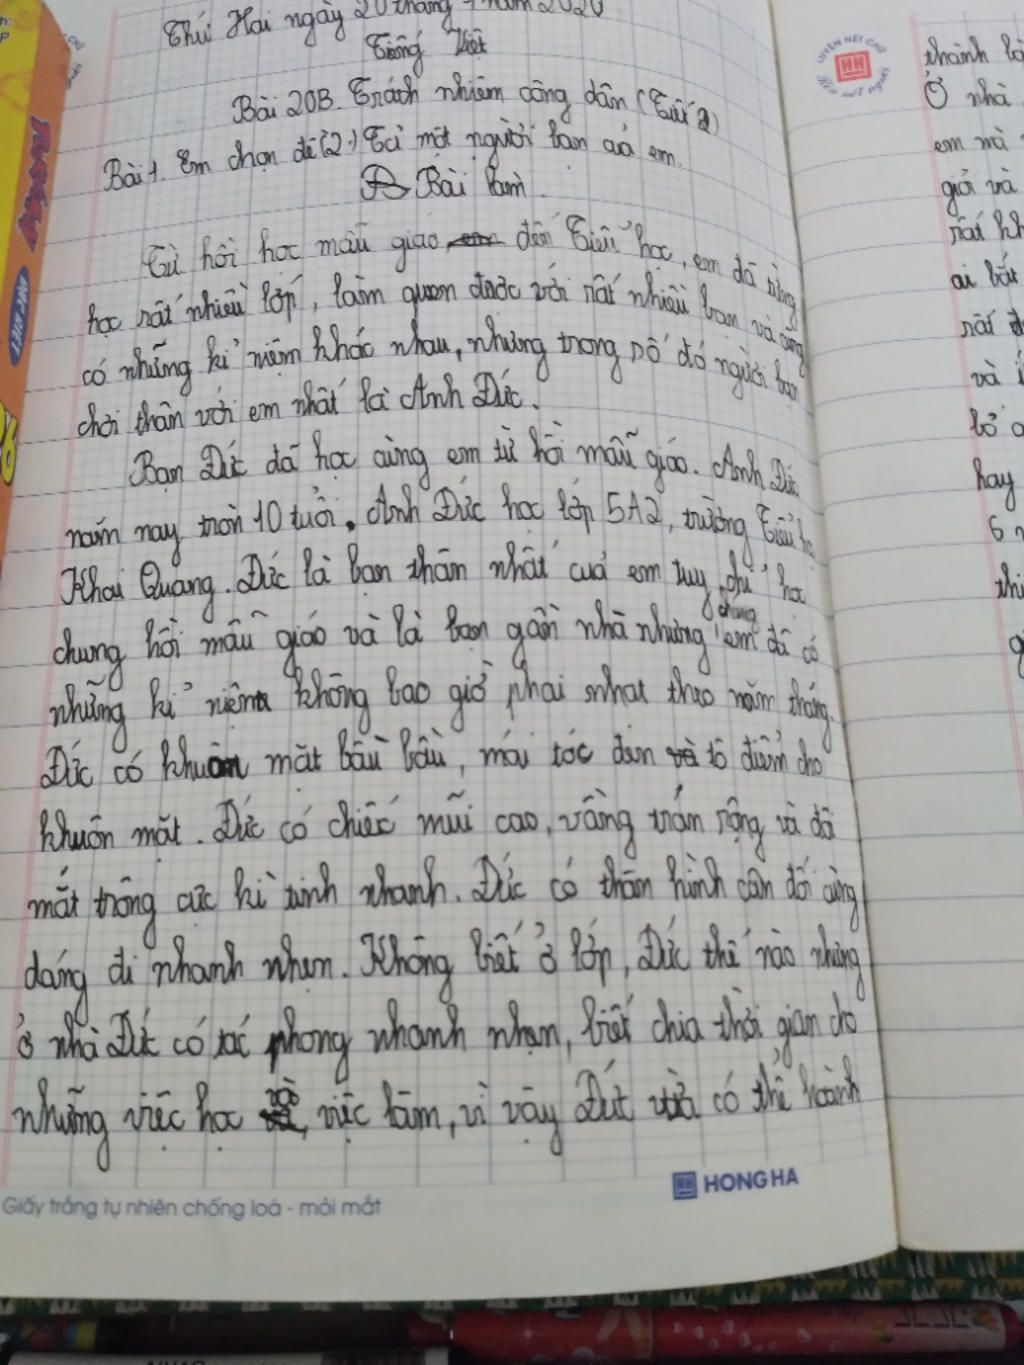 Thứ Hai ngày 20 tháng 1 năm 2020
Tiếng Việt
Bài 20B. Trách nhiệm công dân (Tiết 2)
Bài 1. Em chọn đề (2.) Tả một người bạn của em.
Bài làm.
Từ hồi học mẫu giáo đến Tiểu học, em đã từng
học rất nhiều lớp, làm quen được với rất nhiều bạn và cũng
có những kỉ niệm khác nhau, nhưng trong số đó người bạn
chơi thân với em nhất là Anh Đức.
Bạn Đức đã học cùng em từ hồi mẫu giáo. Anh Đức
năm nay tròn 10 tuổi. Anh Đức học lớp 5A2, trường Tiểu học
Khai Quang. Đức là bạn thân nhất của em tuy chỉ học
chung hồi mẫu giáo và là bạn gần nhà nhưng chúng em đã có
những kỉ niệm không bao giờ phai nhạt theo năm tháng.
Đức có khuôn mặt bầu bầu, mái tóc đen tô điểm cho
khuôn mặt. Đức có chiếc mũi cao, vầng trán rộng và đôi
mắt trông cực kì tinh nhanh. Đức có thân hình cân đối cùng
dáng đi nhanh nhẹn. Không biết ở lớp, Đức thế nào nhưng
ở nhà Đức có tác phong nhanh nhẹn, biết chia thời gian cho
những việc học và, việc làm, vì vậy Đức vừa có thể hoành
Giấy trắng tự nhiên chống loá - mỏi mắt
HONG HA
LUYỆN NÉT CHỮ
RÈN NẾT NGƯỜI
thành
Ở nhà
em mà
giỏi và
rất
ai bắt
rất
và
bỏ
hay